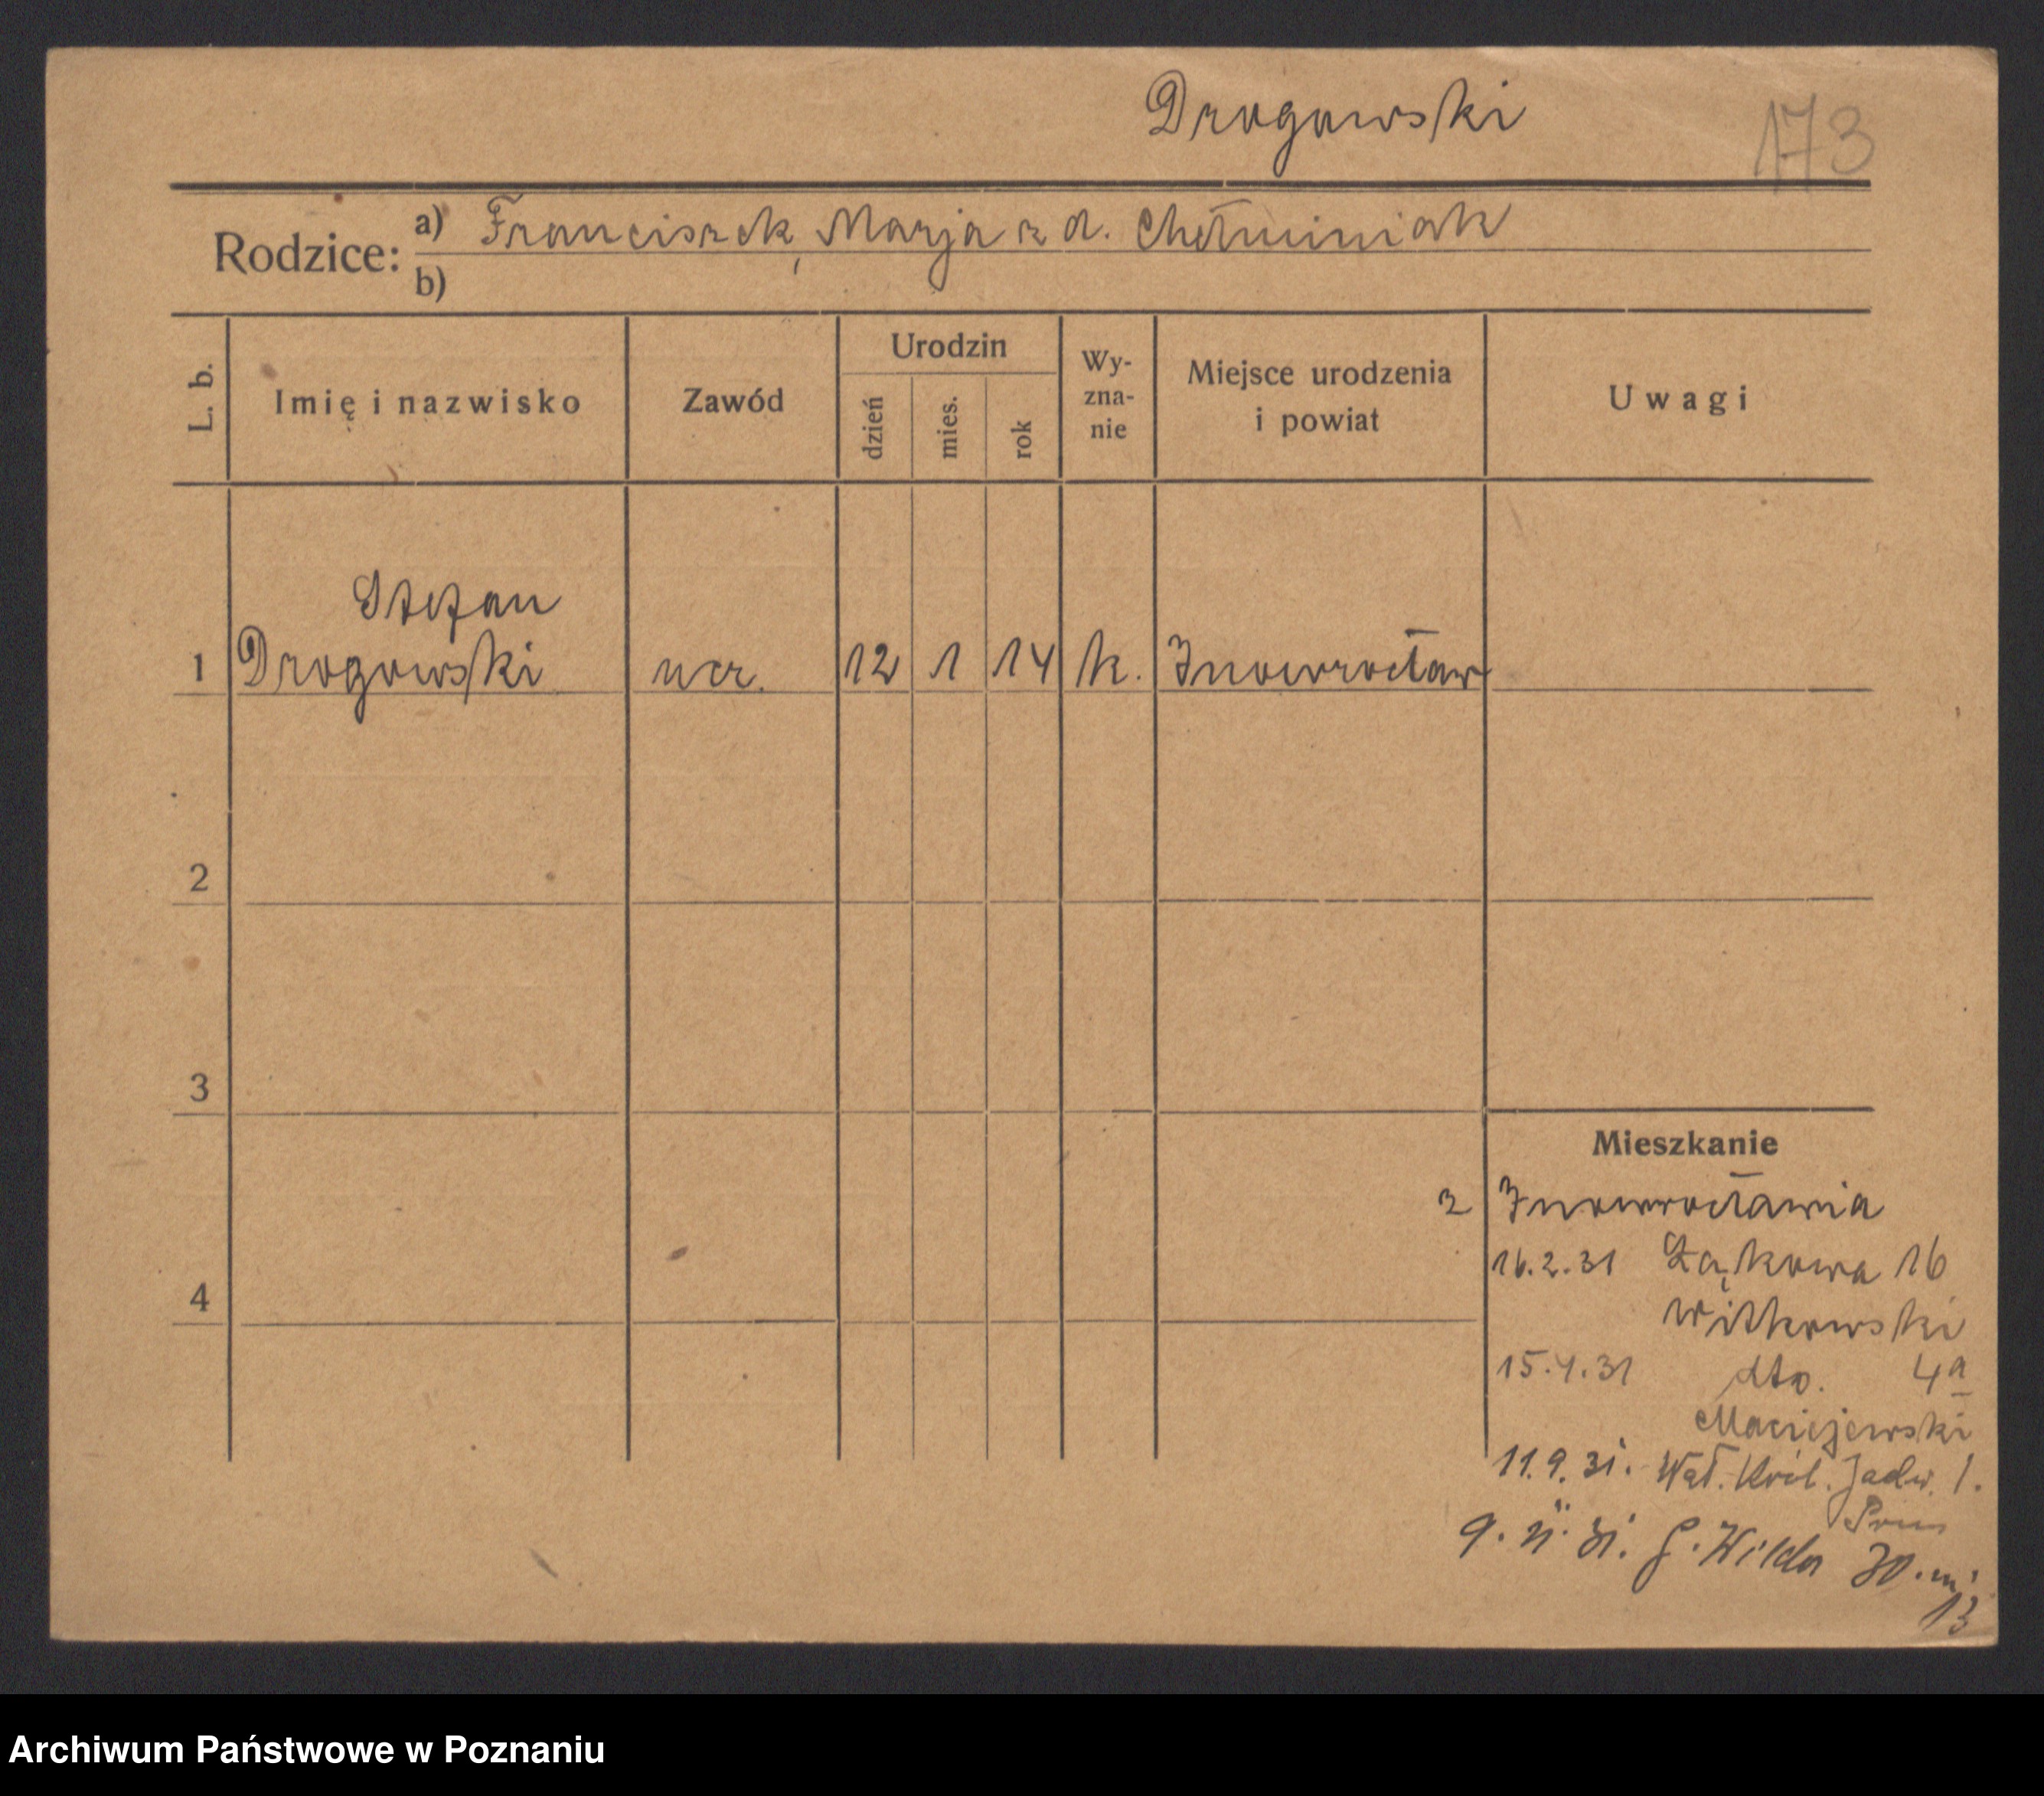 Drogowski
173
Rodzice:
a) Franciszek, Marja z d. Chełminiak
b)
L. b.
Imię i nazwisko
Zawód
Urodzin
dzień
mies.
rok
Wy-
zna-
nie
Miejsce urodzenia
i powiat
Uwagi
Stefan
1 Drogowski ucz. 12 1 14 k. Inowrocław
2
3
4
Mieszkanie
z Inowrocławia
16.2.31 Łąkowa 16
Witkowski
15.4.31 dto. 4a
Maciejewski
11.9.31. Wał. Król. Jadw. 1.
Prus
9. 11. 31. G. Wilda 30. m.
13
Archiwum Państwowe w Poznaniu